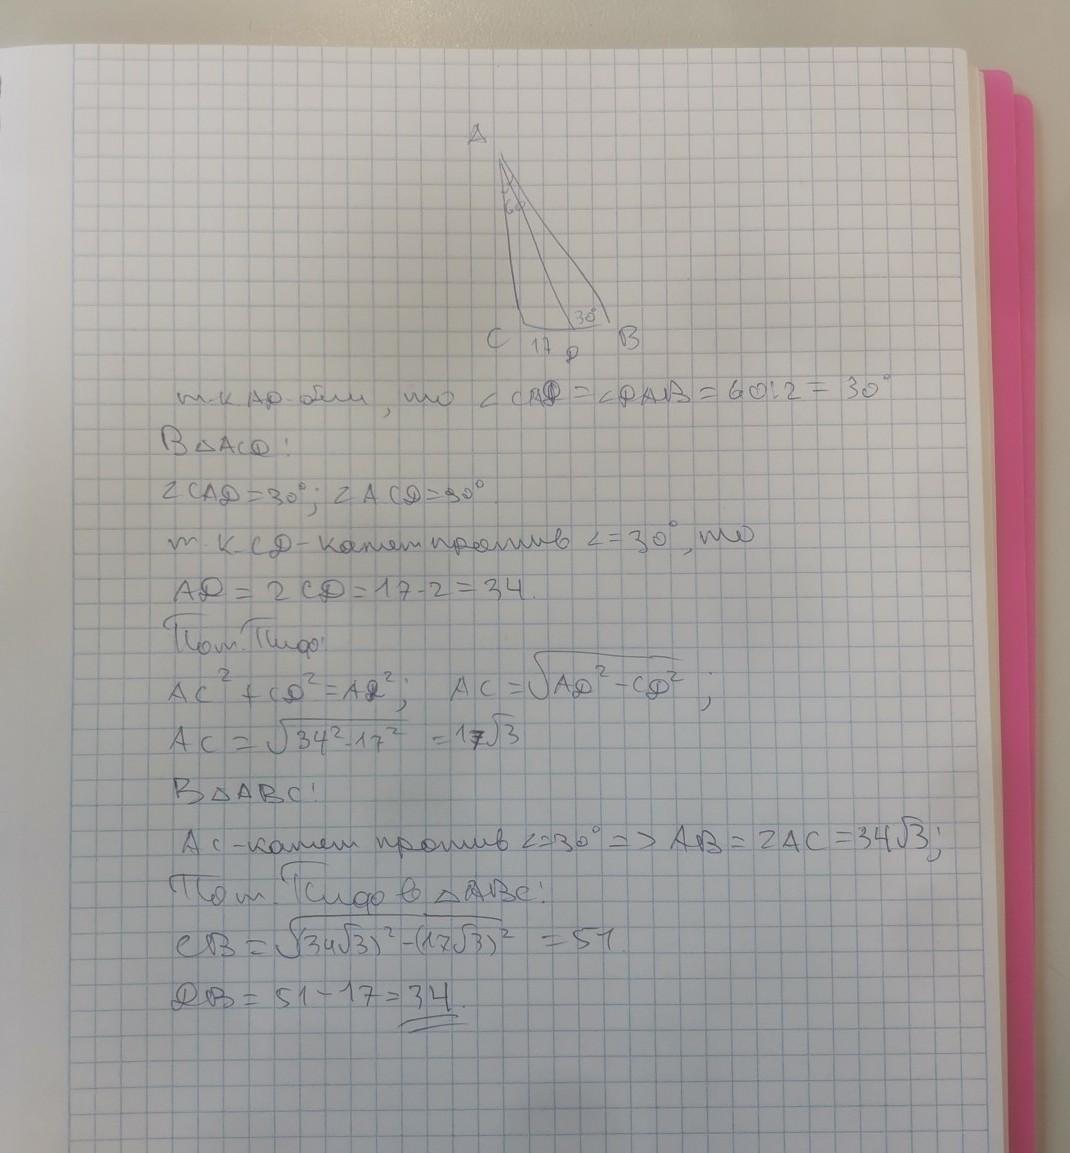 A
60
30°
C 17 D B
т.к AD-бис, то ∠CAD = ∠DAB = 60:2 = 30°
В △ACD:
∠CAD=30°; ∠ACD=90°
т.к. CD-катет против ∠=30°, то
AD = 2CD = 17·2 = 34.
По т. Пифо:
AC² + CD² = AD²; AC = √AD² - CD²;
AC = √34²-17² = 17√3
В △ABC:
AC-катет против ∠=30° => AB = 2AC = 34√3;
По т. Пифо в △ABC:
CB = √(34√3)² - (17√3)² = 51
DB = 51 - 17 = 34.